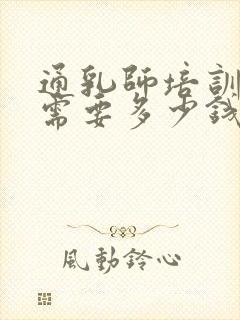 通乳師培訓
需要多少錢
風動鈴心